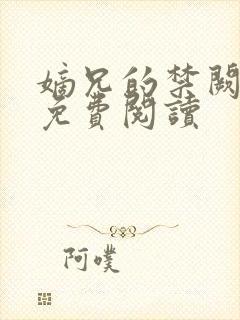 嫡兄的禁闕
免費閱讀
阿噗